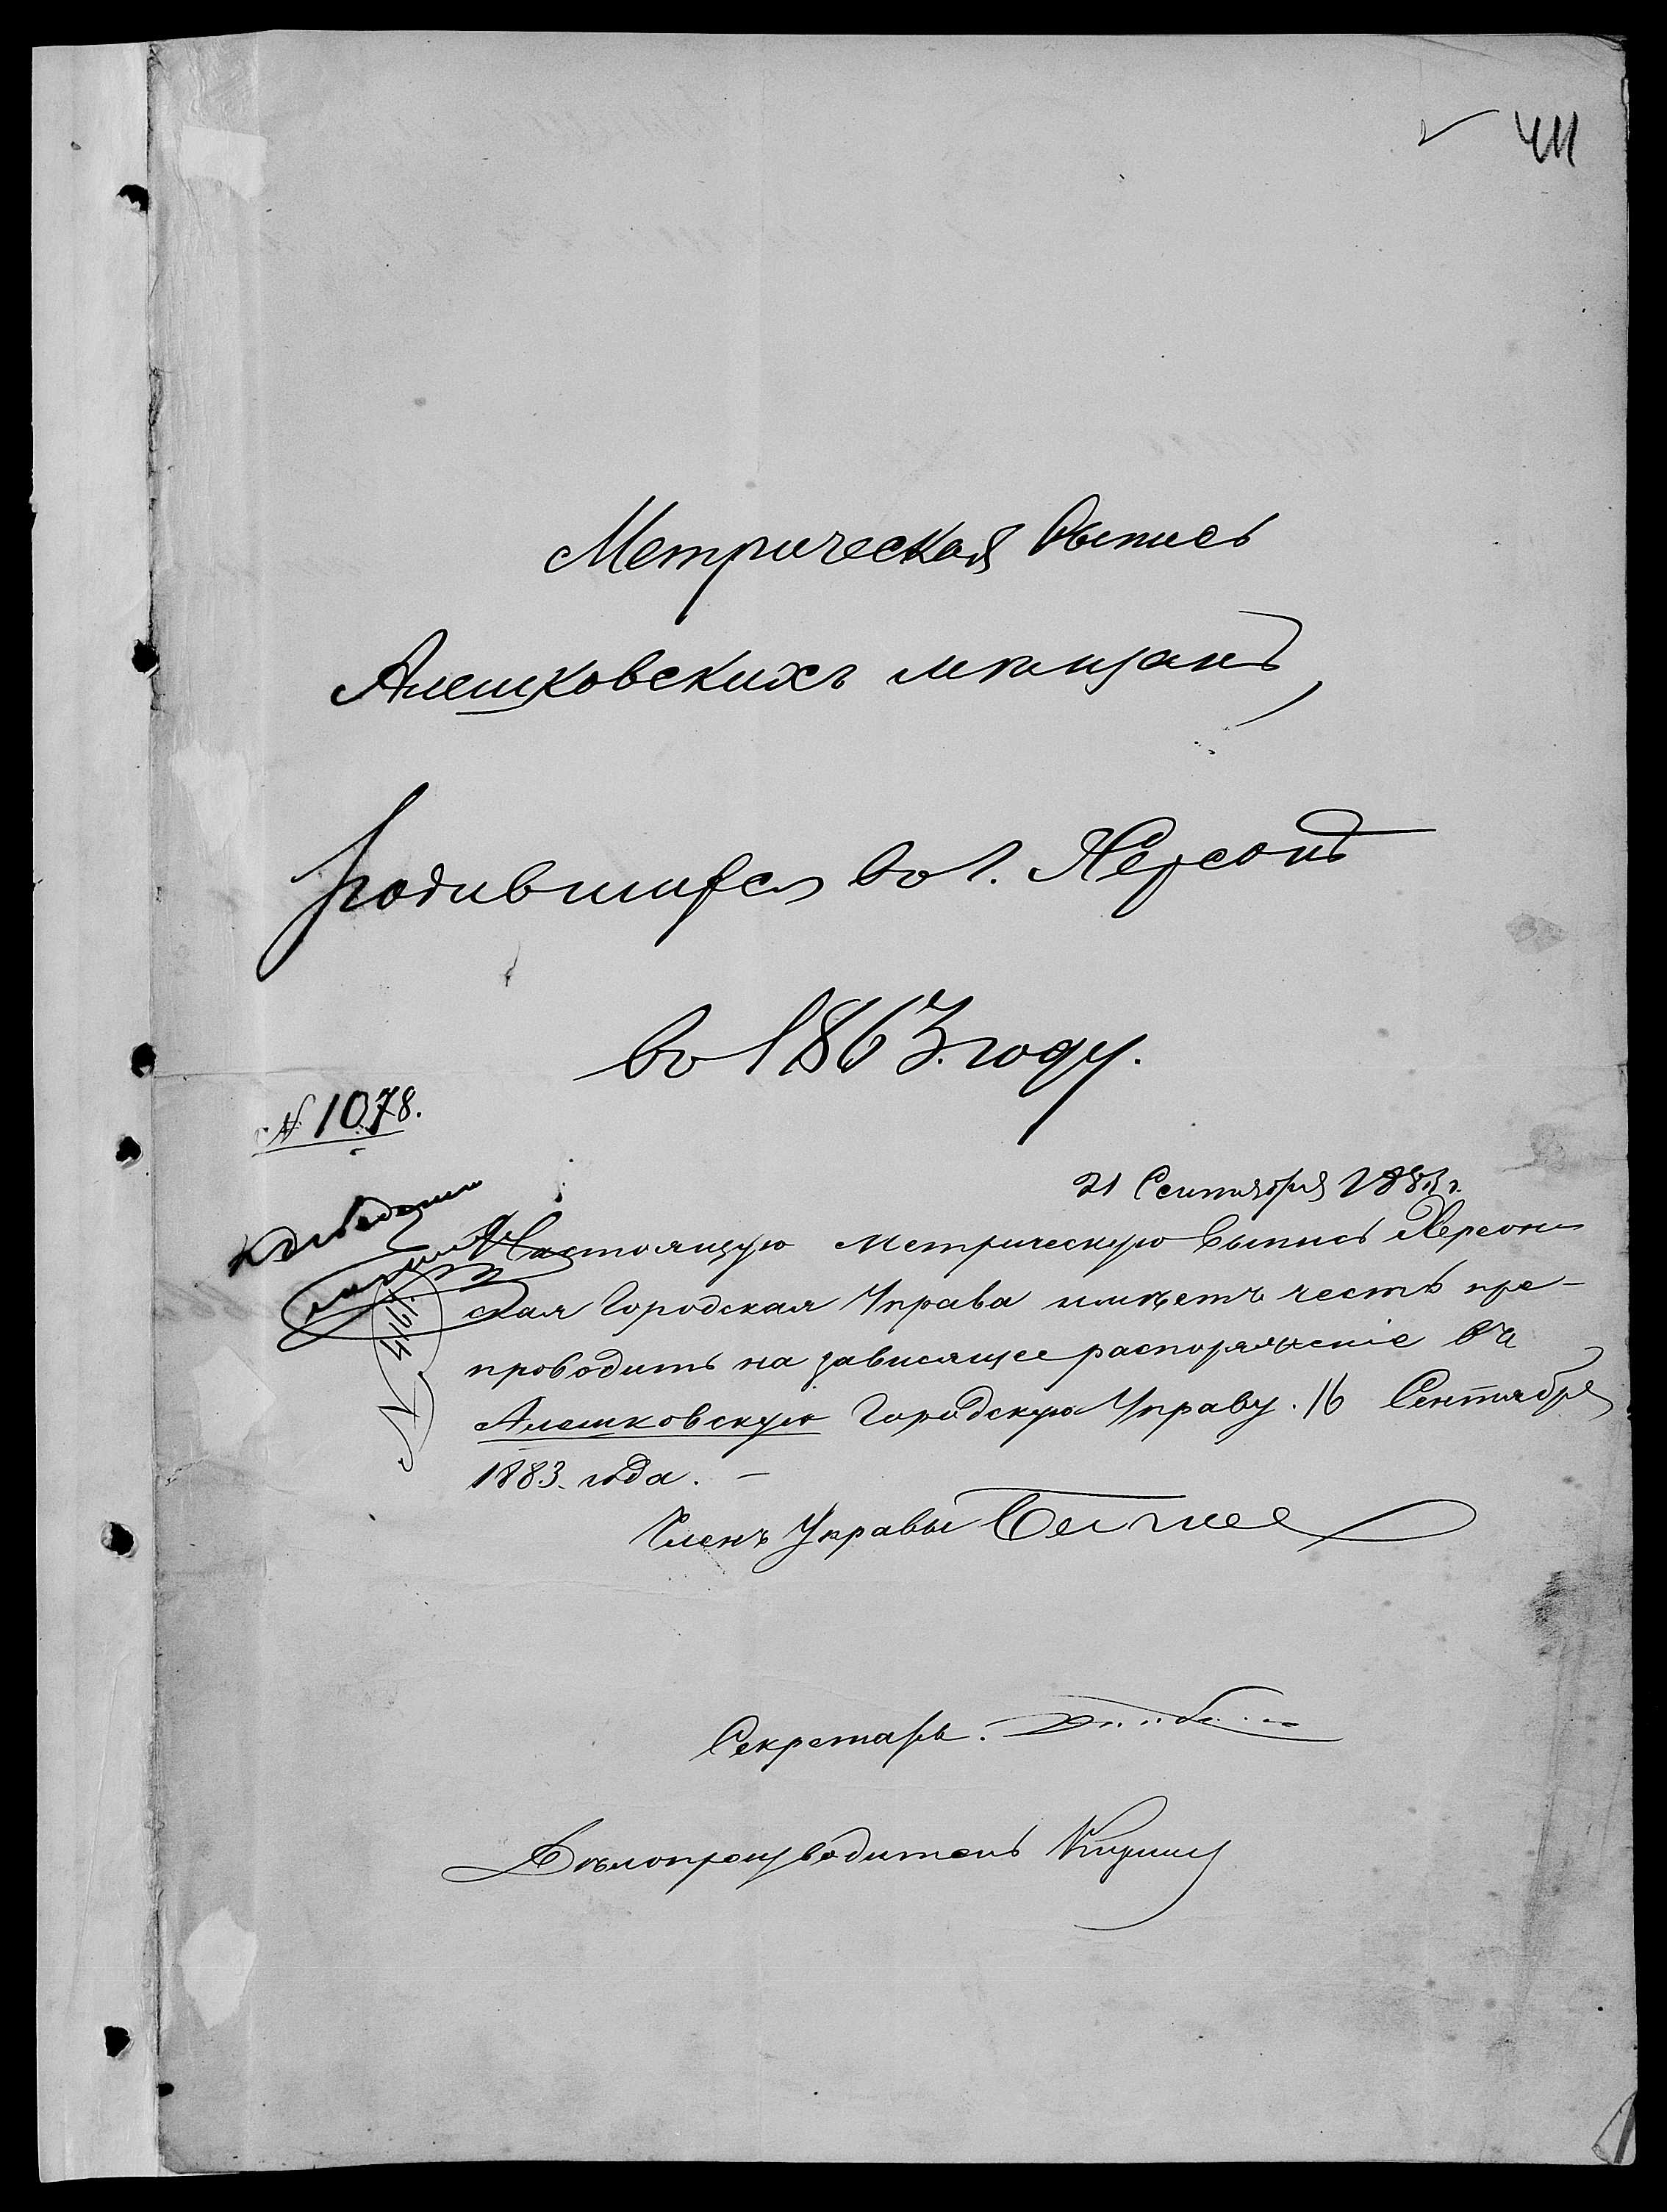 411
Метрическая Выпись
Алешковскихъ мѣщанъ,
родившихся въ г. Херсонѣ
въ 1863. году.
№ 1078.
21 Сентября 1883 г.
Настоящую Метрическую Выпись Херсон-
ская Городская Управа имѣетъ честь пре-
проводить на зависящее распоряженіе въ
Алешковскую Городскую Управу. 16 Сентября
1883. года. –
Членъ Управы
Секретарь.
Дѣлопроизводитель
№ 4161.